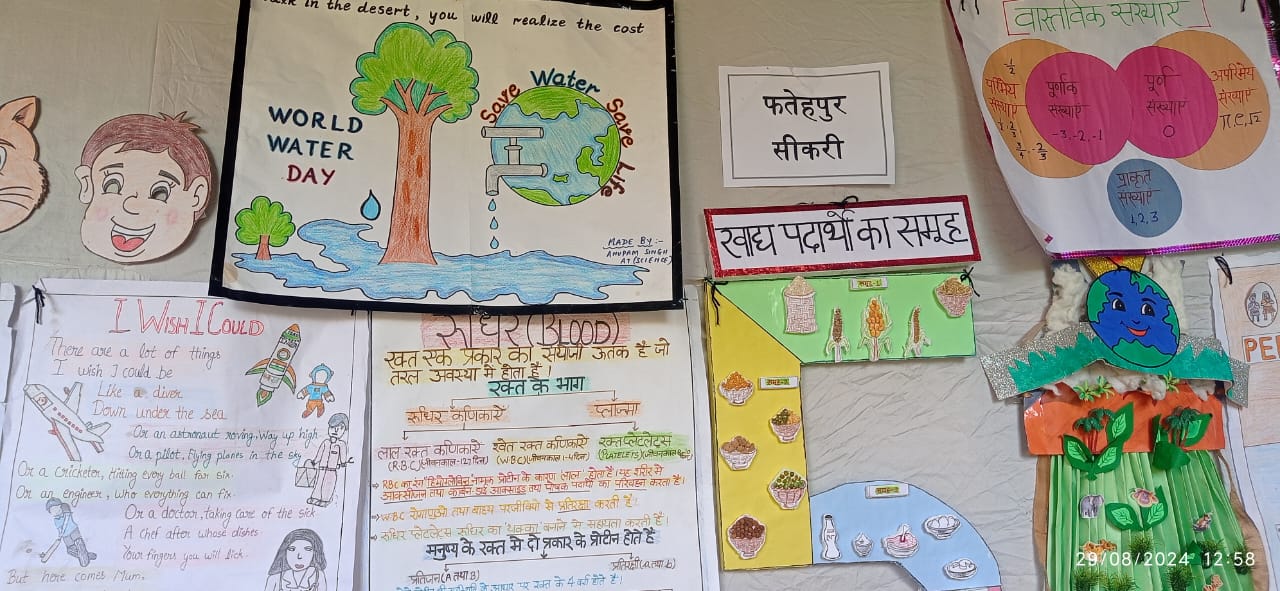 in the desert, you will realize the cost
WORLD
WATER
DAY
Save Water Save Life
MADE BY :-
ANUPAM SINGH
AT (SCIENCE)
फतेहपुर
सीकरी
खाद्य पदार्थो का समूह
समूह-1
वास्तविक संख्याएं
1/2
परिमेय
संख्याएं
3/4, -2/3
पूर्णांक
संख्याएं
-3,-2,-1
पूर्ण
संख्याएं
0
अपरिमेय
संख्याएं
π, e, √2
प्राकृत
संख्याएं
1,2,3
I WISH I COULD
There are a lot of things
I wish I could be
Like a diver
Down under the sea
Or an astronaut roving, Way up high
Or a pilot, flying planes in the sky
Or a cricketer, Hitting every ball for six.
Or an engineer, who everything can fix.
Or a doctor, taking care of the sick
A chef after whose dishes
Your fingers you will lick.
But here comes Mum,
रुधिर (BLOOD)
रक्त एक प्रकार का संयोजी ऊतक है जो
तरल अवस्था में होता है।
रक्त के भाग
रुधिर कणिकाएं प्लाज्मा
लाल रक्त कणिकाएं श्वेत रक्त कणिकाएं रक्त प्लेटलेट्स
(RBC) (जीवनकाल-120दिन) (WBC) (जीवनकाल-1-4दिन) (PLATELETS)
RBC का रंग हिमोग्लोबिन नामक प्रोटीन के कारण 'लाल' होता है। यह शरीर में
आक्सीजन तथा कार्बन डाई आक्साइड तथा पोषक पदार्थों का परिवहन करता है।
WBC रोगाणुओं तथा बाह्य परजीवियों से प्रतिरक्षा करती हैं।
रुधिर प्लेटलेट्स रुधिर का थक्का बनाने में सहायता करती हैं।
मनुष्य के रक्त में दो प्रकार के प्रोटीन होते हैं
प्रतिजन (A तथा B) प्रतिरक्षी (a तथा b)
रक्त के 4 वर्ग होते हैं।
PE
29/08/2024 12:58